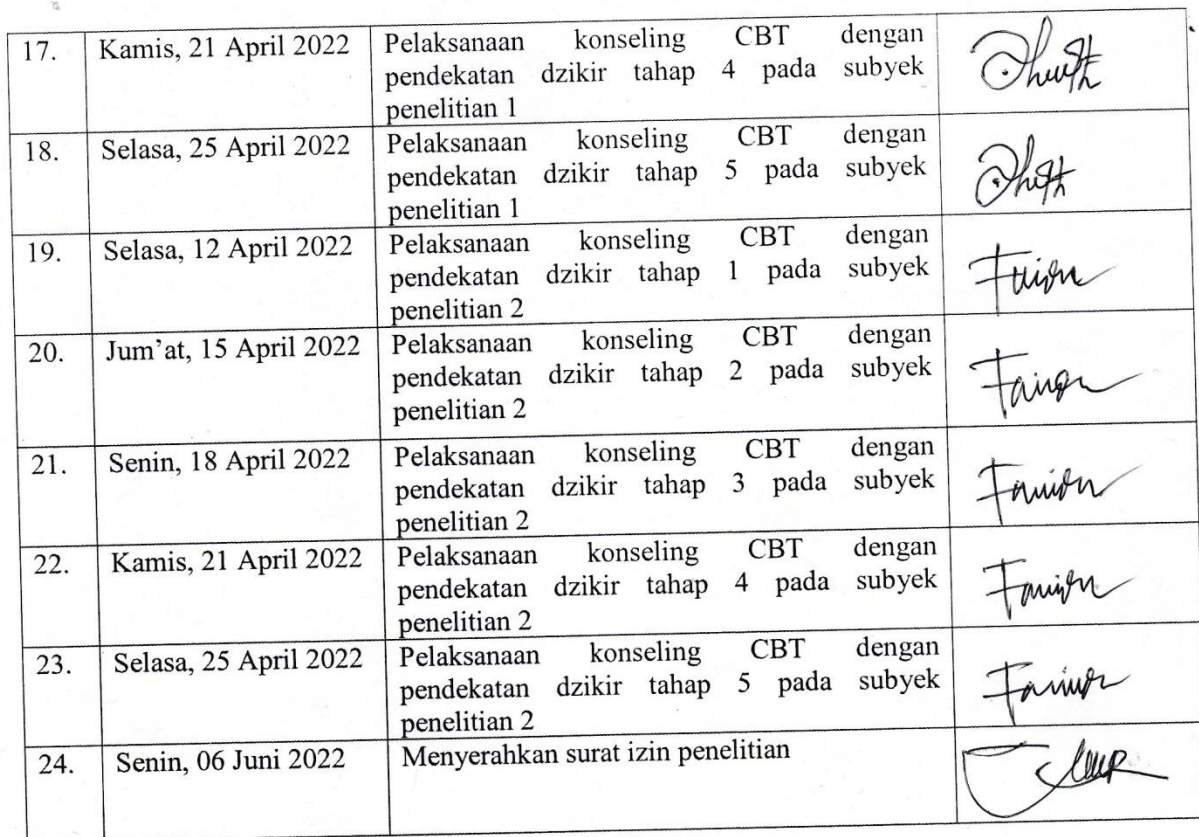 17. Kamis, 21 April 2022 Pelaksanaan konseling CBT dengan
pendekatan dzikir tahap 4 pada subyek
penelitian 1
18. Selasa, 25 April 2022 Pelaksanaan konseling CBT dengan
pendekatan dzikir tahap 5 pada subyek
penelitian 1
19. Selasa, 12 April 2022 Pelaksanaan konseling CBT dengan
pendekatan dzikir tahap 1 pada subyek
penelitian 2
20. Jum'at, 15 April 2022 Pelaksanaan konseling CBT dengan
pendekatan dzikir tahap 2 pada subyek
penelitian 2
21. Senin, 18 April 2022 Pelaksanaan konseling CBT dengan
pendekatan dzikir tahap 3 pada subyek
penelitian 2
22. Kamis, 21 April 2022 Pelaksanaan konseling CBT dengan
pendekatan dzikir tahap 4 pada subyek
penelitian 2
23. Selasa, 25 April 2022 Pelaksanaan konseling CBT dengan
pendekatan dzikir tahap 5 pada subyek
penelitian 2
24. Senin, 06 Juni 2022 Menyerahkan surat izin penelitian